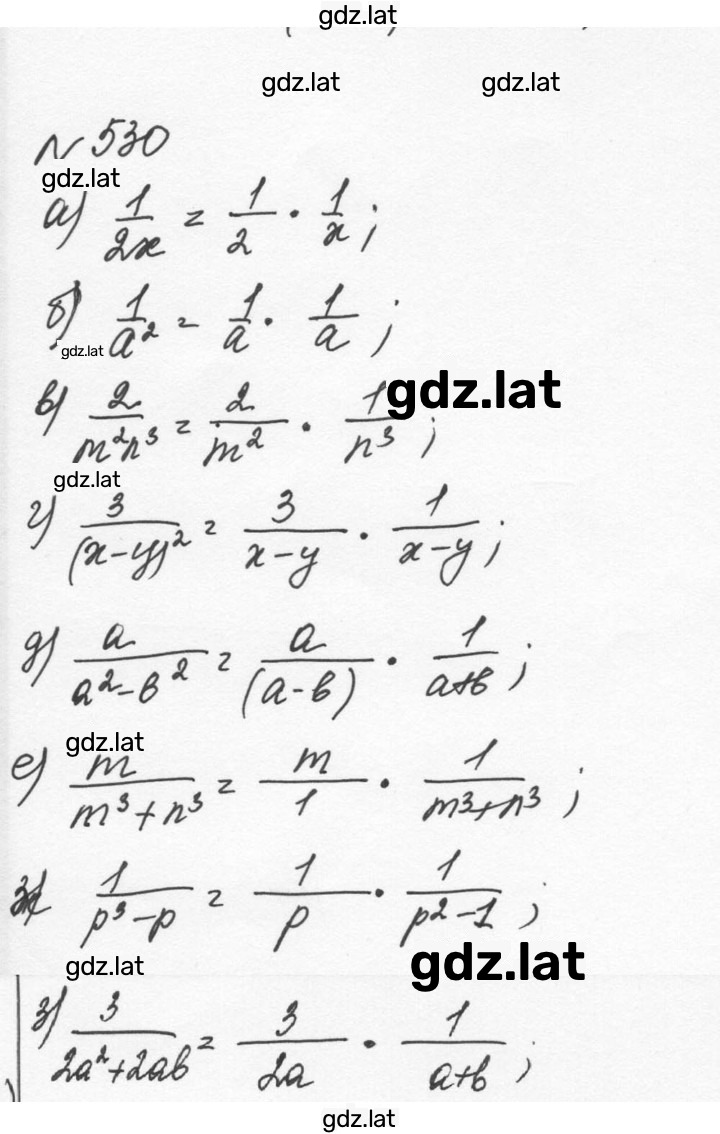 gdz.lat
gdz.lat gdz.lat
№ 530
gdz.lat
а) 1/2x = 1/2 · 1/x;
б) 1/a² = 1/a · 1/a;
gdz.lat
gdz.lat
в) 2/m²n³ = 2/m² · 1/n³;
gdz.lat
г) 3/(x-y)² = 3/x-y · 1/x-y;
д) a/a²-b² = a/(a-b) · 1/a+b;
gdz.lat
е) m/m³+n³ = m/1 · 1/m³+n³;
ж) 1/p³-p = 1/p · 1/p²-1;
gdz.lat gdz.lat
з) 3/2a²+2ab = 3/2a · 1/a+b;
gdz.lat